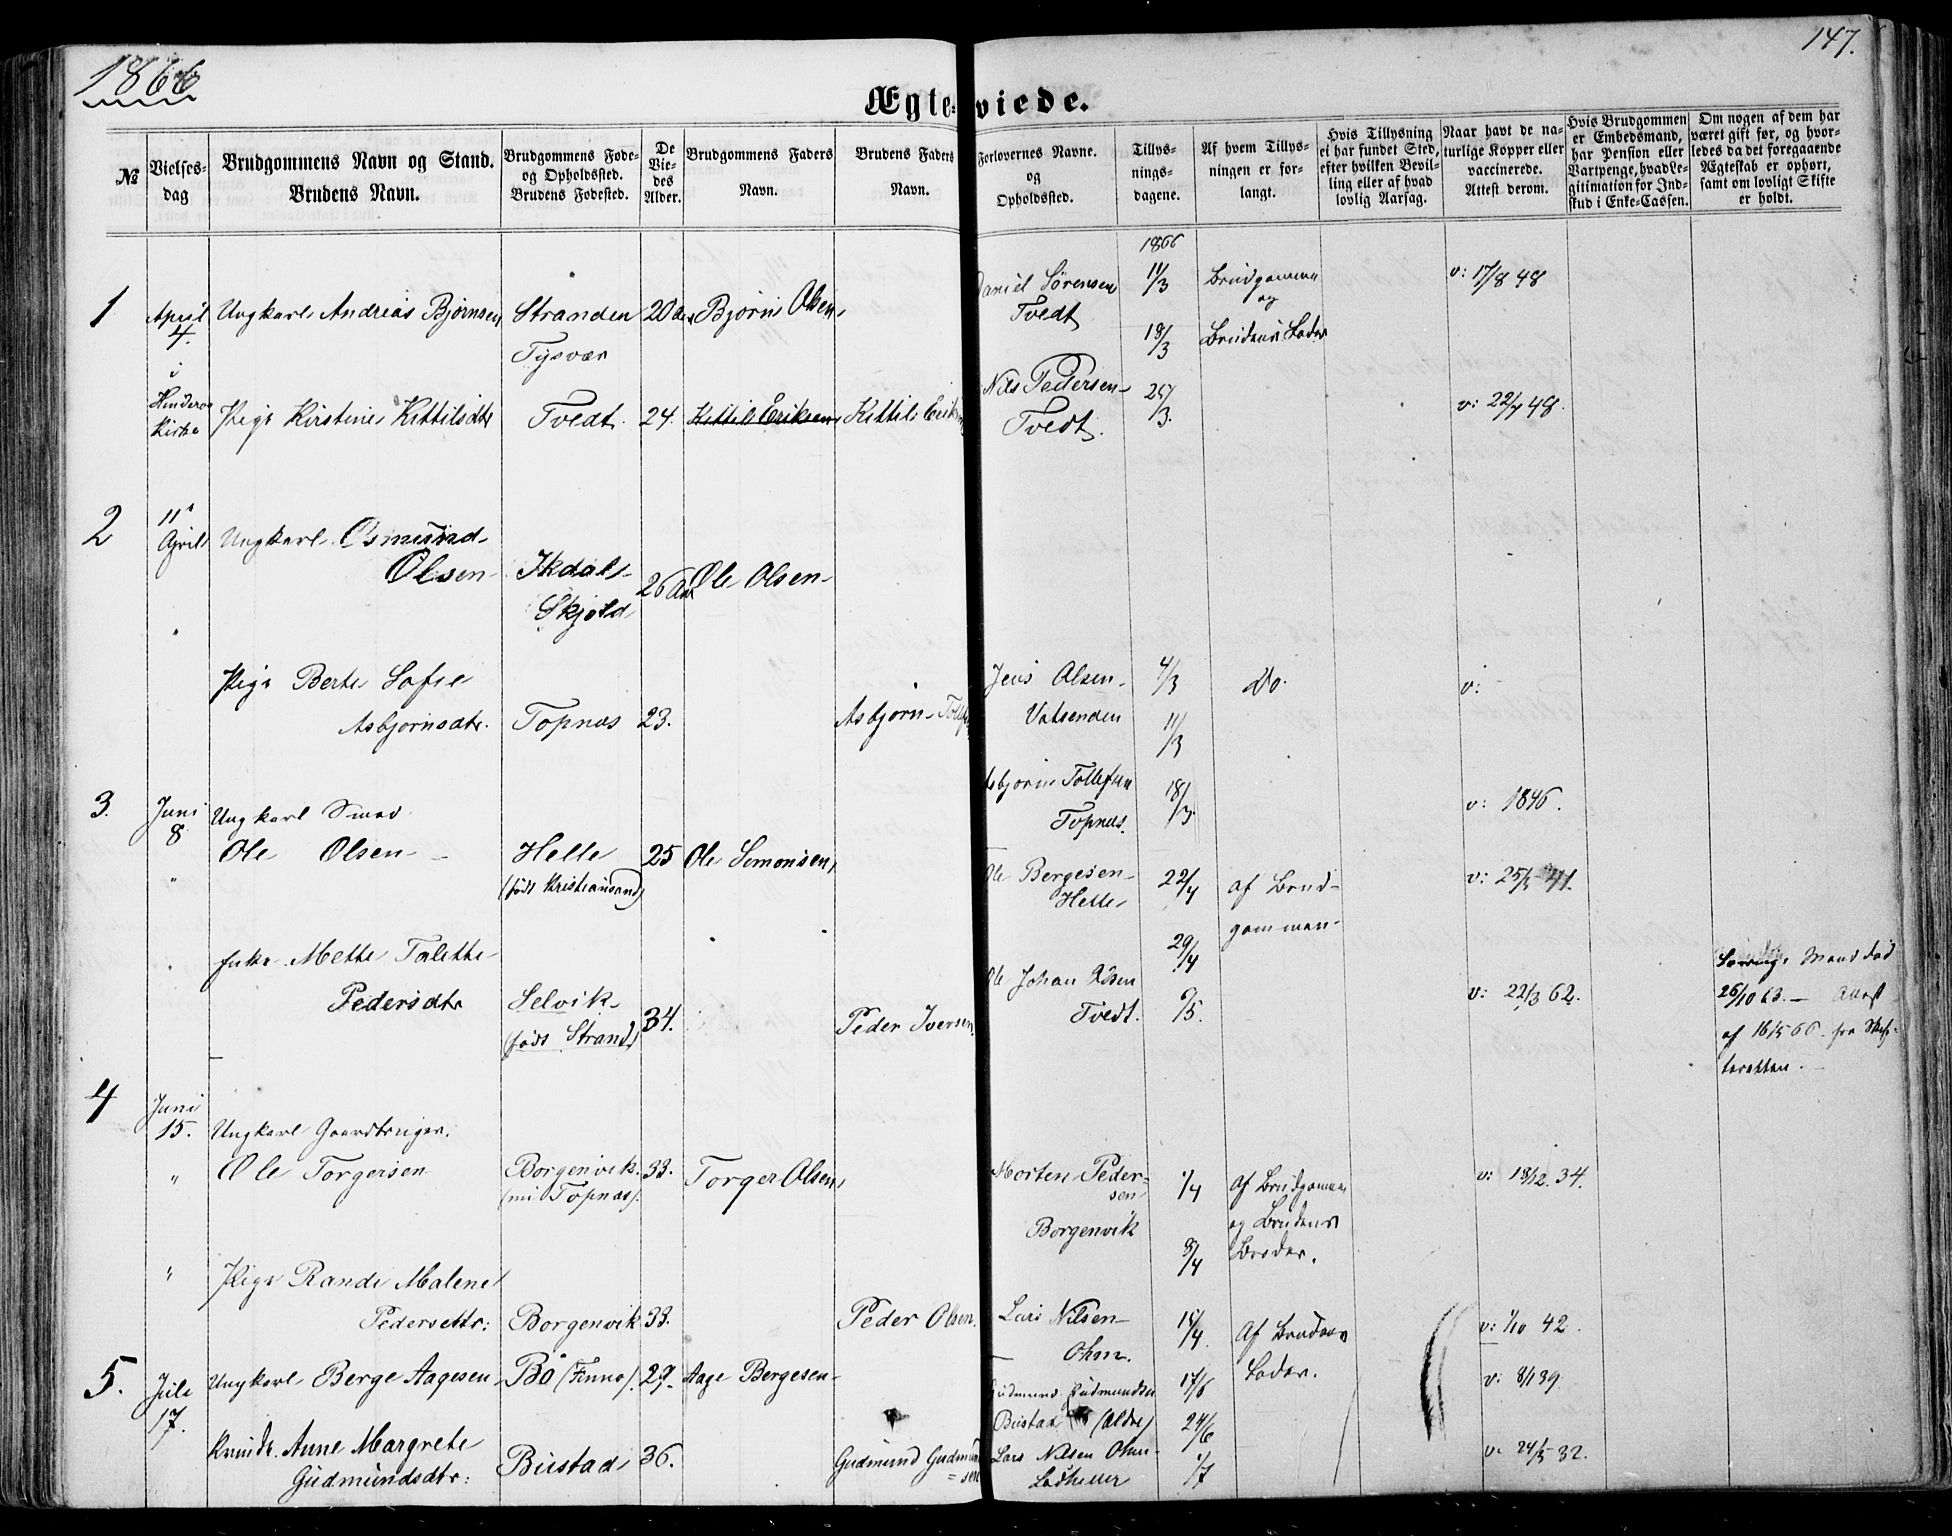 1866
147.
Ægteviede.
№
Vielses-
dag
Brudgommens Navn og Stand.
Brudens Navn.
Brudgommens Føde-
og Opholdssted.
Brudens Fødested.
De
Vie-
des
Alder.
Brudgommens Faders
Navn.
Brudens Faders
Navn.
Forlovernes Navne.
og
Opholdssted.
Tillys-
nings-
dagene.
Af hvem Tillys-
ningen er for-
langt.
Hvis Tillysning
ei har fundet Sted,
efter hvilken Bevil-
ling eller af hvad
lovlig Aarsag.
Naar havt de na-
turlige Kopper eller
vaccinerede.
Attest derom.
Hvis Brudgommen
er Embedsmand,
har Pension eller
Vartpenge, hvad Le-
gitimation for Ind-
skud i Enke-Cassen.
Om nogen af dem har
været gift før, og hvor-
ledes da det foregaaende
Ægteskab er ophørt,
samt om lovligt Skifte
er holdt.
1
April
4.
i
Hinderaa
Kirke
Ungkarl Andreas Bjørnsen
Stranden
Tysvær
20 Aar
Bjørn Olsen
Daniel Sørensen
Tvedt
1866
11/3
18/3
Brudgommen
og
Brudens Fader
v: 17/8 48
Pige Kirstine Kittilsdtr
Tvedt.
24.
Kittil Eriksen
Kittil Erik
Nils Pedersen
Tvedt.
25/3.
v: 22/7 48.
2
11
April
"
Ungkarl Osmund
Olsen
Ikdal
Skjold
26 Aar
Ole Olsen
Pige Berte Sofie
Asbjørnsdtr.
Topnæs
23.
Asbjørn Tollefs
Jens Olsen
Vatsenden
4/3
11/3
Do
v:
Asbjørn Tollefsen
Topnæs.
18/3
v: 1846.
3.
Juni
8
"
Ungkarl Smed
Ole Olsen
Helle
(født Kristiansand)
25
Ole Simonsen
Ole Bergesen
Helle
22/4
29/4
af Brud-
gommen
v: 25/5 41.
"
Enke Mette Talette
Pedersdtr
Selvik
(født Strand)
34.
Peder Iversen.
Ole Johan Olsen
Tvedt.
6/5.
v: 22/3 62.
Mand død
26/10 63. Attest
af 16/5 66 fra Skif-
teretten.
4
Juni
15.
"
Ungkarl Gaardbruger.
Ole Torgersen
Borgenvik
(nu Topnæs).
33.
Torger Olsen
Morten Peder-
sen
Borgenvik
1/4
8/4
Af Brudgommen
og Brudens
Broder.
v: 18/12. 34.
"
Pige Rande Malene
Pedersdtr:
Borgenvik
33.
Peder Olsen.
Lars Nilsen
Ohm.
15/4.
Af Brudens
Fader.
v: 1/10 42.
5.
Juli
17.
Ungkarl Berge Aagesen
Bø (Finnø).
29.
Aage Bergesen
Gudmund Gudmundsen
Bustad (Aldre)
17/6
24/6
v: 8/1 39.
Kvinde. Anne Margrete
Gudmundsdtr:
Bustad
36.
Gudmund Gudmund
=sen
Lars Nilsen Ohm
1/7
v. 24/5 32.